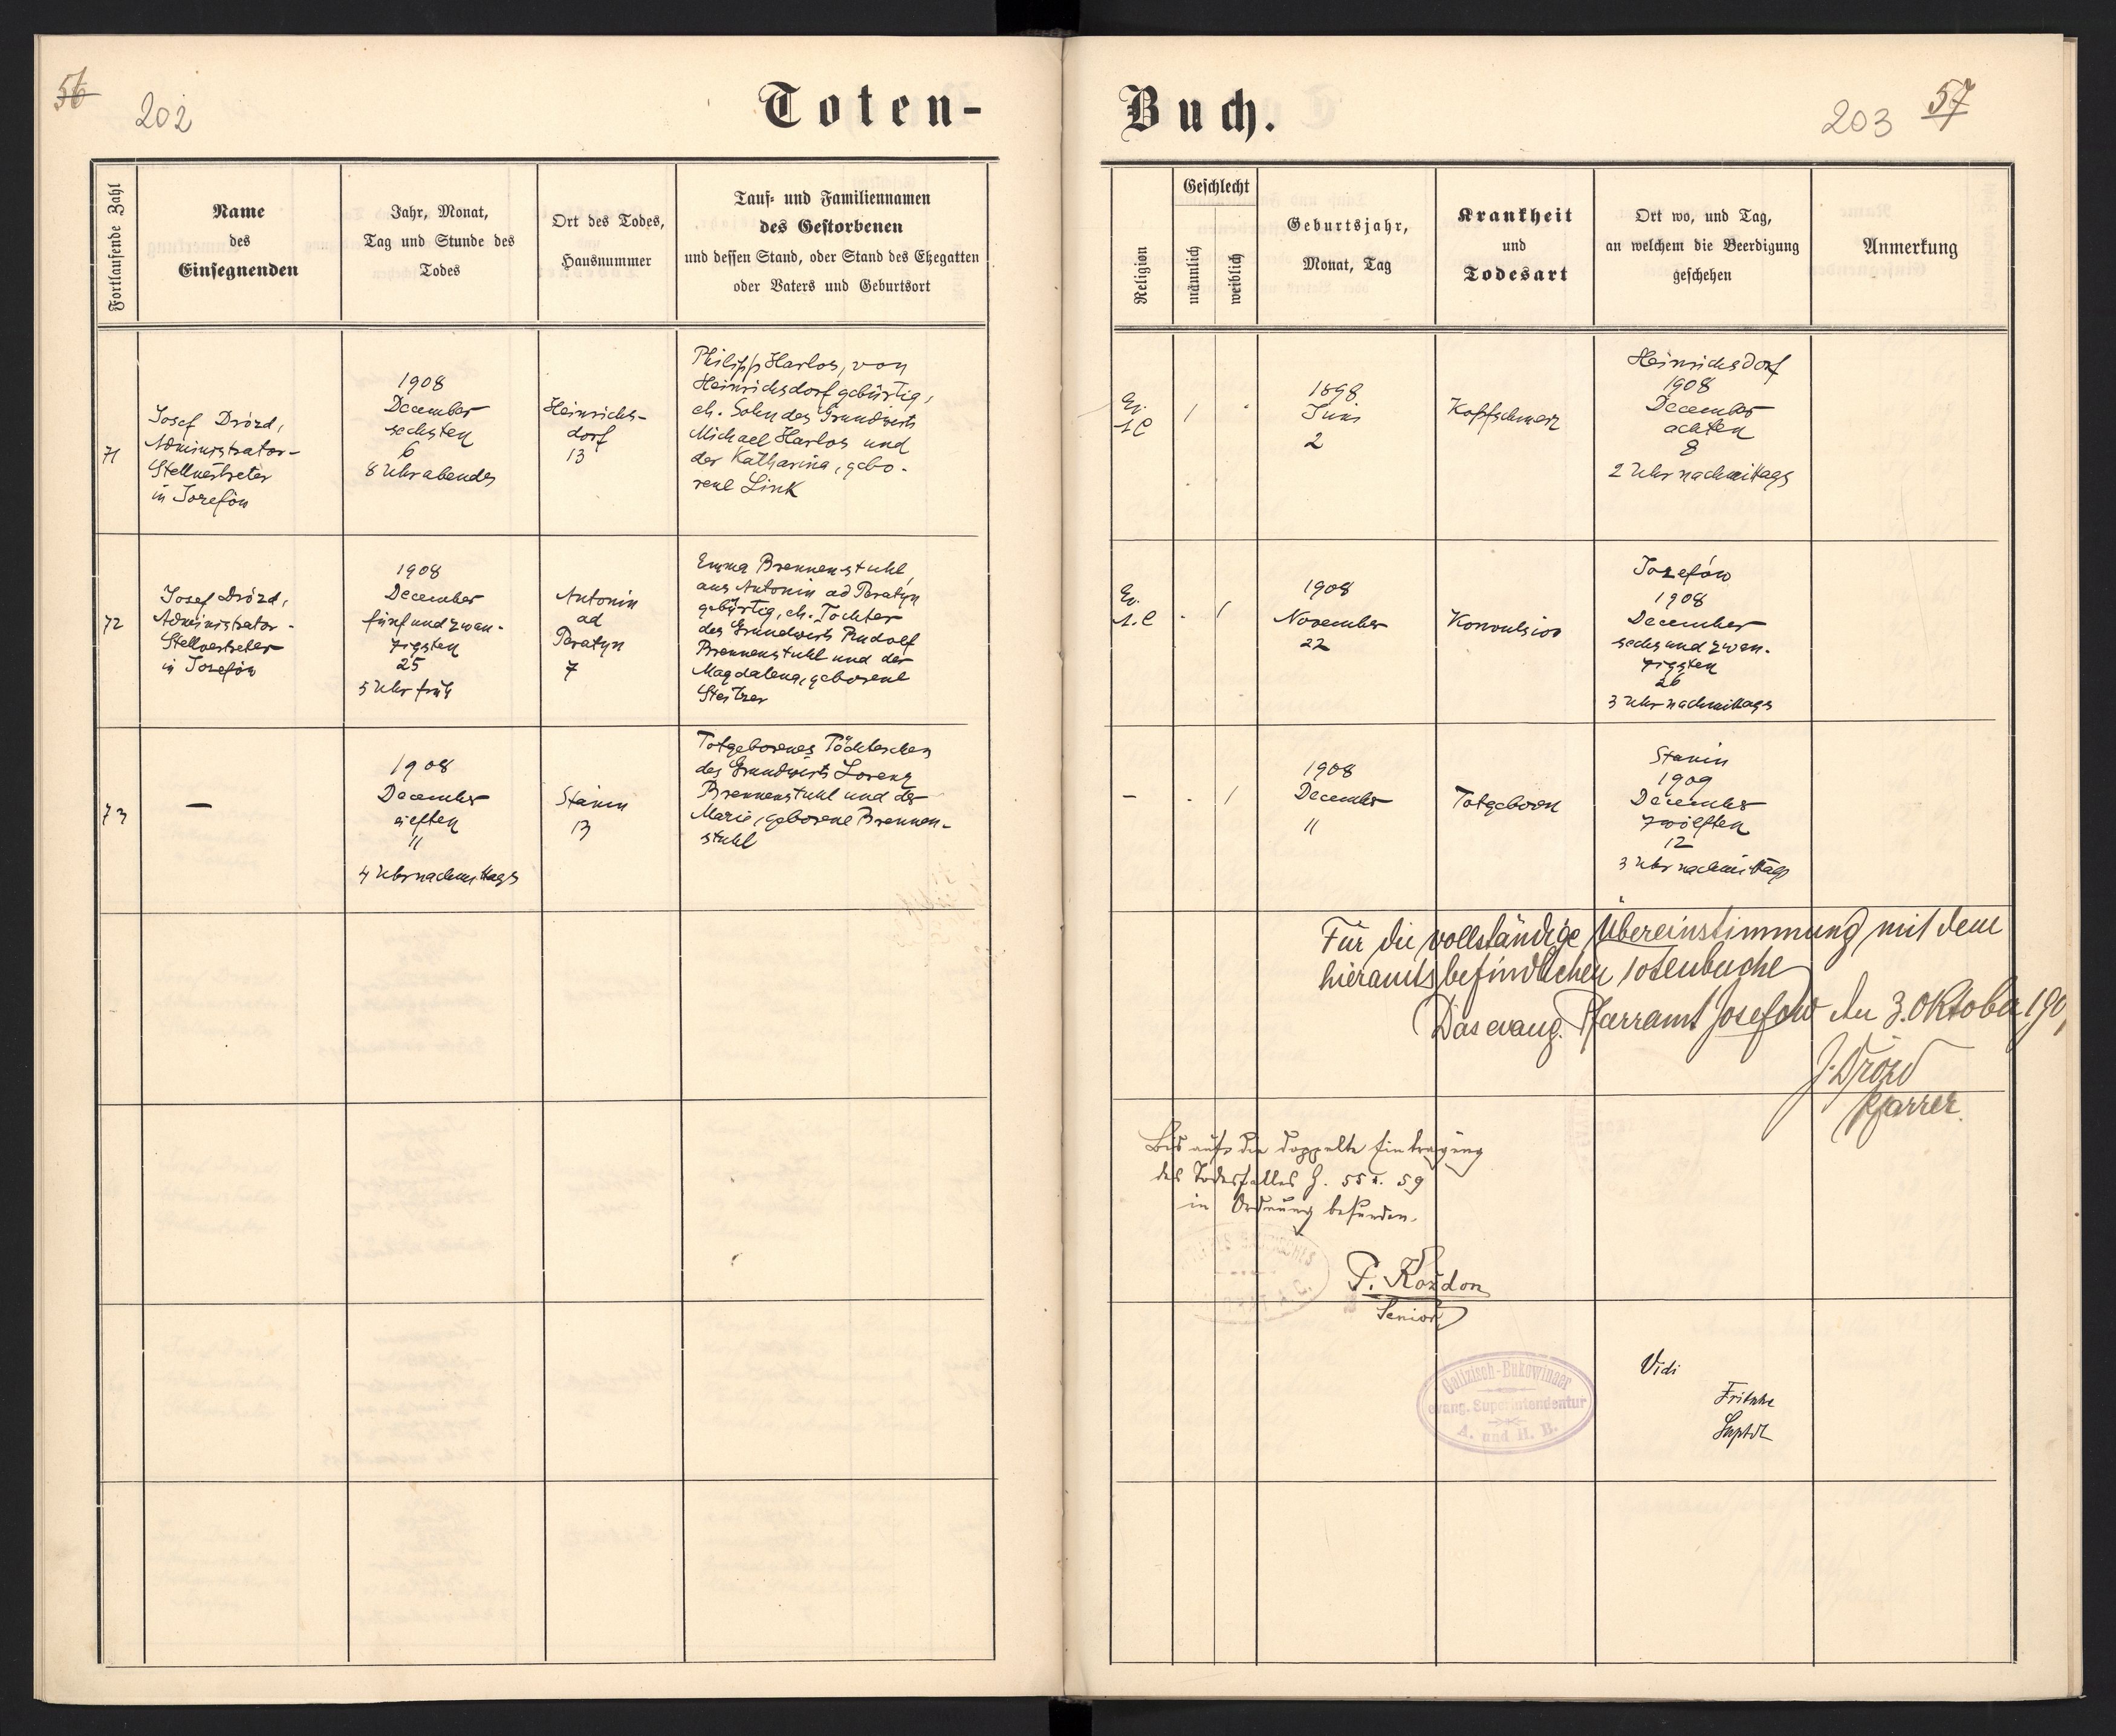 56
202
Toten-
Fortlaufende Zahl
Name
des
Einsegnenden
Jahr, Monat,
Tag und Stunde des
Todes
Ort des Todes,
Hausnummer
Tauf- und Familiennamen
des Gestorbenen
und dessen Stand, oder Stand des Ehegatten
oder Vaters und Geburtsort
71
Josef Drózd,
Administrator-
Stellvertreter
in Jozefów
1908
December
sechsten
6
8 Uhr abends
Heinrichs-
dorf
13
Philipp Harlos, von
Heinrichsdorf gebürtig,
eh. Sohn des Grundwirts
Michael Harlos und
der Katharina, gebo-
rene Link
72
Josef Drózd,
Administrator-
Stellvertreter
in Jozefów
1908
December
fünfundzwan-
zigsten
25
5 Uhr früh
Antonin
ad
Peratyn
7
Emma Brennenstuhl,
aus Antonin ad Peratyn
gebürtig, eh. Tochter
des Grundwirts Rudolf
Brennenstuhl und der
Magdalena, geborene
Steitzer
73
—
1908
December
eilften
11
4 Uhr nachmittags
Stanin
13
Totgeborenes Töchterchen
des Grundwirts Lorenz
Brennenstuhl und der
Marie, geborene Brennen-
stuhl
Buch.
203
57
Religion
Geschlecht
männlich
weiblich
Geburtsjahr,
Monat, Tag
Krankheit
und
Todesart
Ort wo, und Tag,
an welchem die Beerdigung
geschehen
Anmerkung
Ev.
A.C
/
1898
Juni
2
Kopfschmerz
Heinrichsdorf
1908
December
achten
8
2 Uhr nachmittags
Ev.
A.C
/
1908
November
22
Konvulsion
Jozefów
1908
December
sechsundzwan-
zigsten
26
3 Uhr nachmittags
-
/
1908
December
11
Totgeboren
Stanin
1909
December
zwölften
12
3 Uhr nachmittags
Für die vollständige Übereinstimmung mit dem
hieramts befindlichen Totenbuche
Das evang. Pfarramt Josefow den 3. Oktober 190
J. Drózd
Pfarrer.
Bis auf die doppelte Eintragung
des Todesfalles Z. 55 u. 59
in Ordnung befunden.
P. Kozdon
Senior
Galizisch-Bukowinaer
evang. Superintendentur
A. und H. B.
Vidi
Fritsche
Suptdt